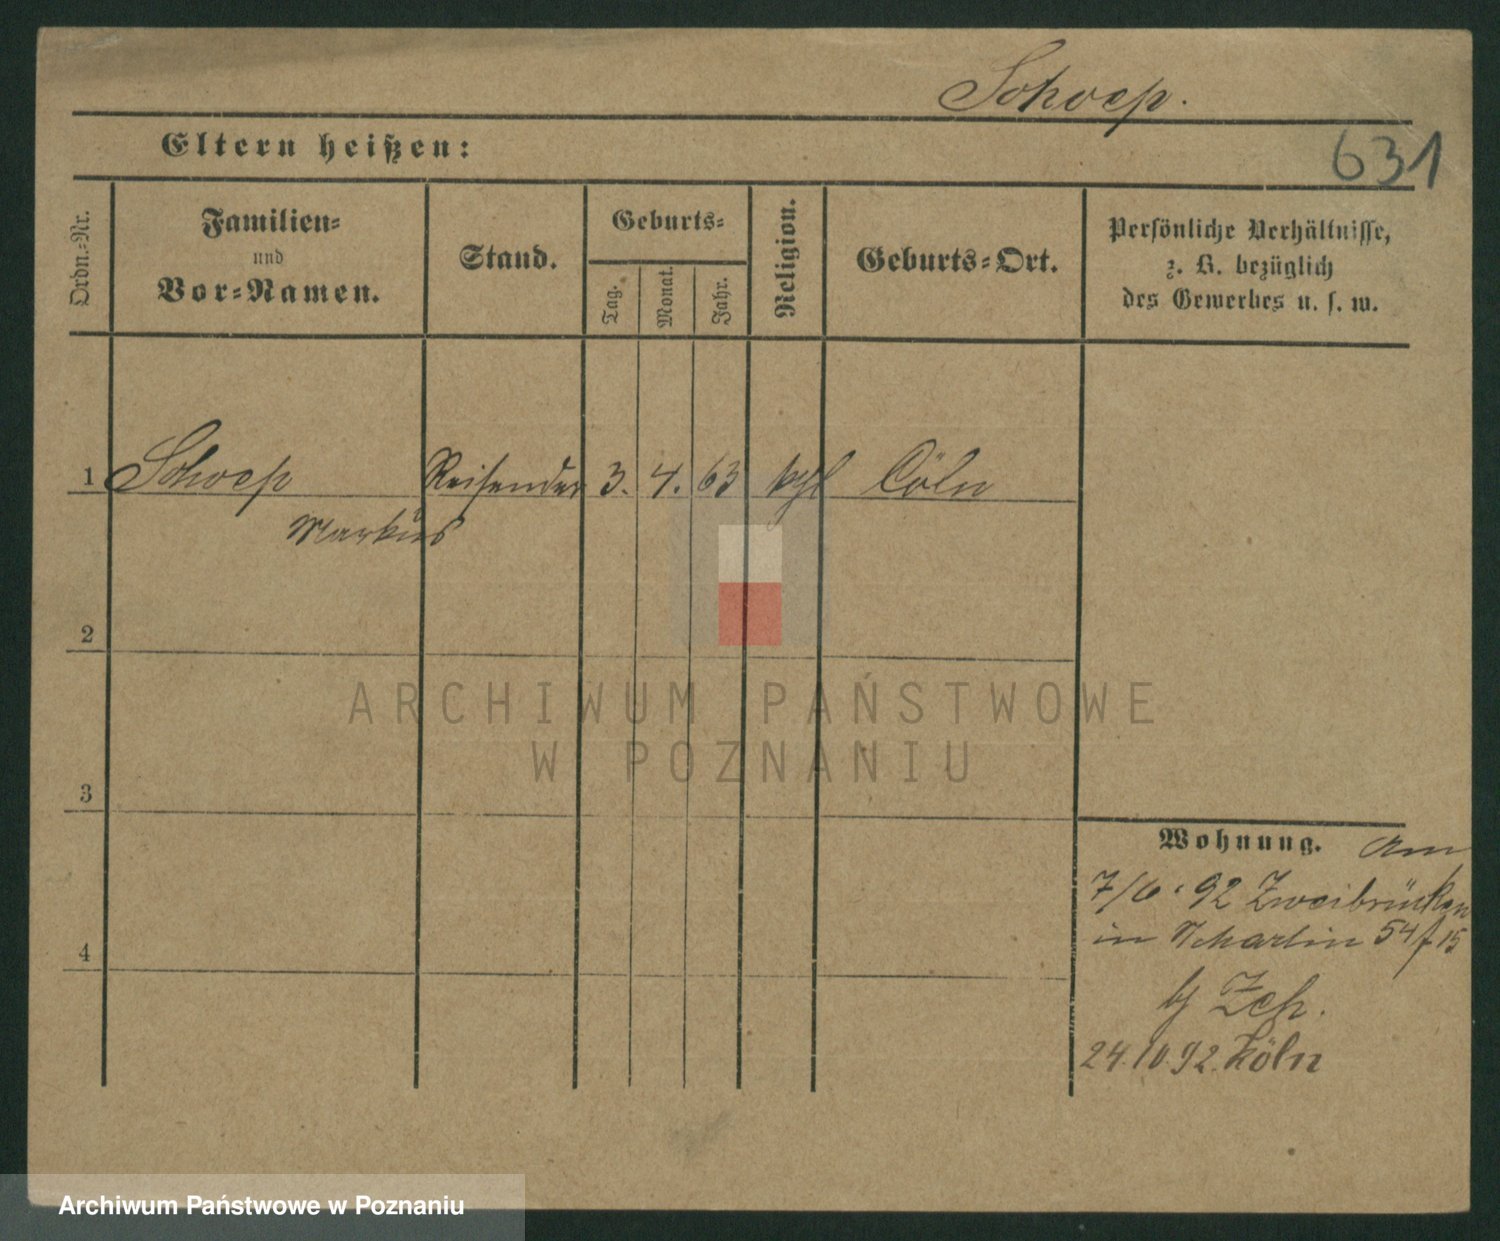 Schoep.
631
Eltern heißen:
Ordn.-Nr.
Familien-
und
Vor-Namen.
Stand.
Geburts-
Tag.
Monat.
Jahr.
Religion.
Geburts-Ort.
Persönliche Verhältnisse,
z. B. bezüglich
des Gewerbes u. s. w.
1 Schoep Reisender 3. 4. 63 kghl Cöln
Markus
2
ARCHIWUM PAŃSTWOWE
W POZNANIU
3
Wohnung. Am
7/6. 92 Zweibrücken
in 54 15
4
24.10.92. Köln
Archiwum Państwowe w Poznaniu